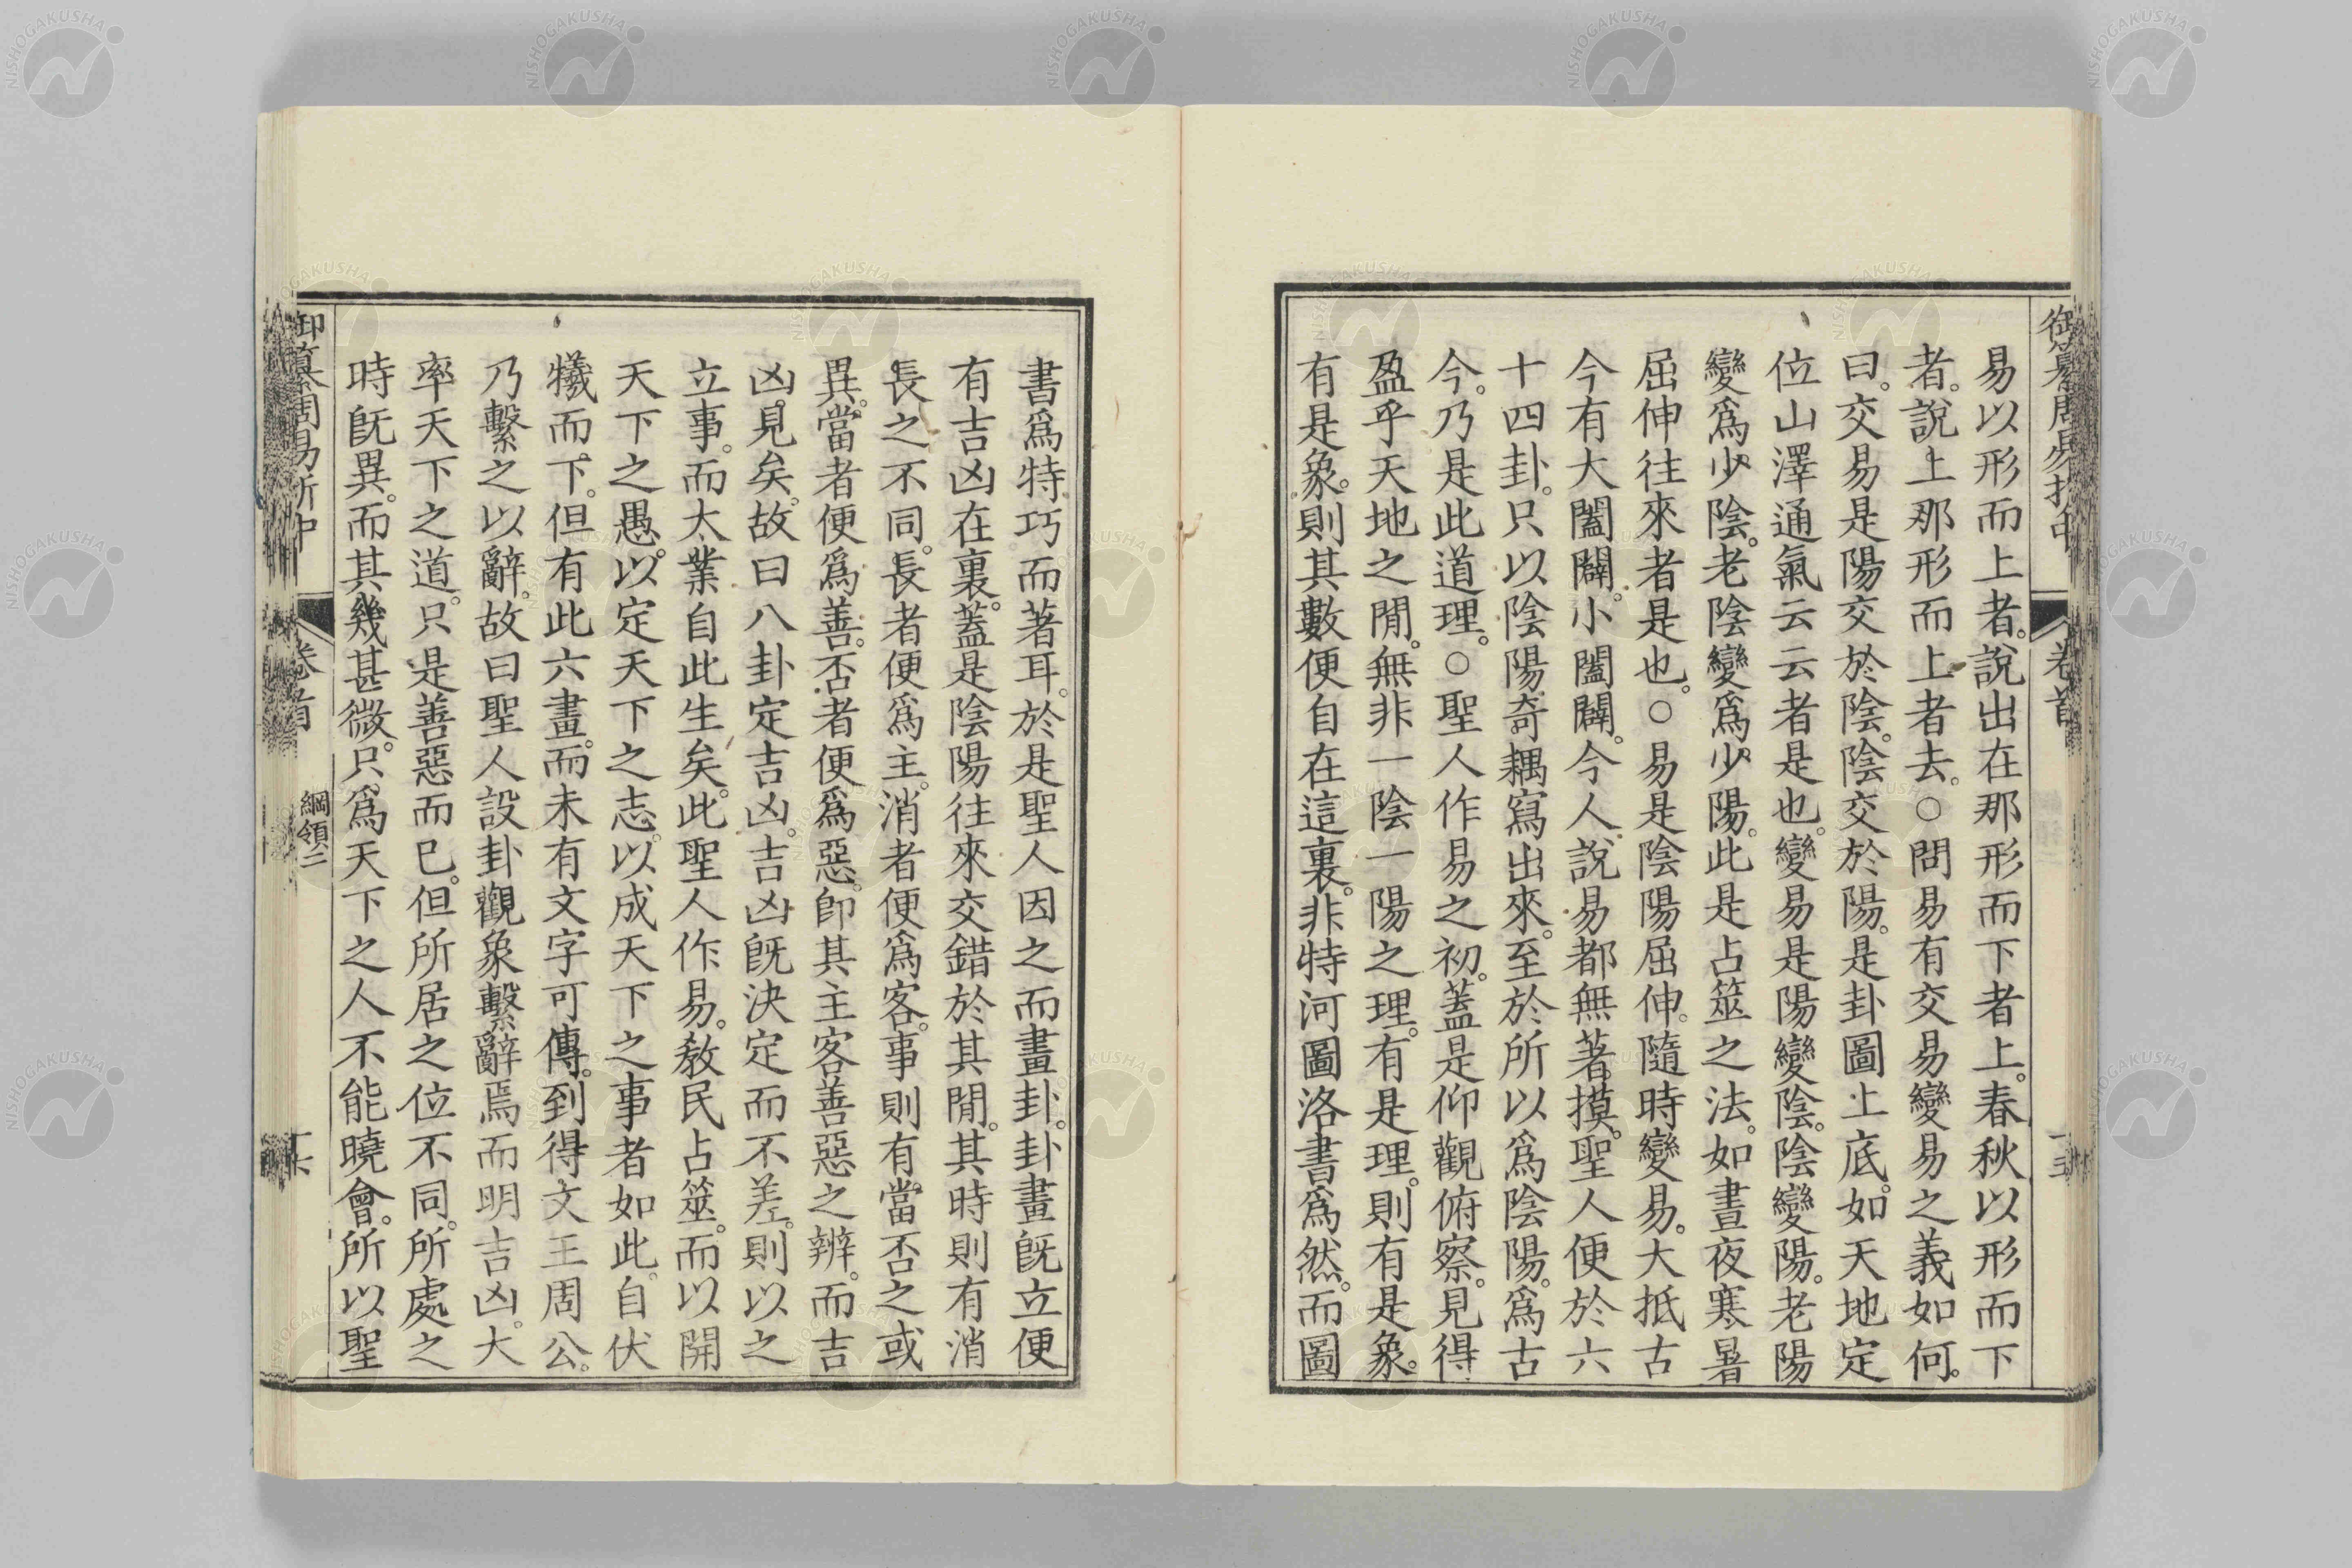 御纂周易折中
卷首
易以形而上者。說出在那形而下者上。春秋以形而下
者。說上那形而上者去。○問易有交易變易之義如何。
曰。交易是陽交於陰。陰交於陽。是卦圖上底。如天地定
位山澤通氣云云者是也。變易是陽變陰。陰變陽。老陽
變爲少陰。老陰變爲少陽。此是占筮之法。如晝夜寒暑
屈伸往來者是也。○易是陰陽屈伸。隨時變易。大抵古
今有大闔闢。小闔闢。今人說易都無著摸。聖人便於六
十四卦。只以陰陽奇耦寫出來。至於所以爲陰陽。爲古
今。乃是此道理。○聖人作易之初。蓋是仰觀俯察。見得
盈乎天地之閒。無非一陰一陽之理。有是理。則有是象。
有是象。則其數便自在這裏。非特河圖洛書爲然。而圖
書爲特巧而著耳。於是聖人因之而畫卦。卦畫旣立便
有吉凶在裏。蓋是陰陽往來交錯於其閒。其時則有消
長之不同。長者便爲主。消者便爲客。事則有當否之或
異。當者便爲善。否者便爲惡。卽其主客善惡之辨。而吉
凶見矣。故曰八卦定吉凶。吉凶旣決定而不差。則以之
立事。而大業自此生矣。此聖人作易。敎民占筮。而以開
天下之愚。以定天下之志。以成天下之事者如此。自伏
犧而下。但有此六畫。而未有文字可傳。到得文王周公。
乃繫之以辭。故曰聖人設卦觀象繫辭焉而明吉凶。大
率天下之道。只是善惡而已。但所居之位不同。所處之
時旣異。而其幾甚微。只爲天下之人不能曉會。所以聖
御纂周易折中
卷首
綱領二
NISHOGAKUSHA